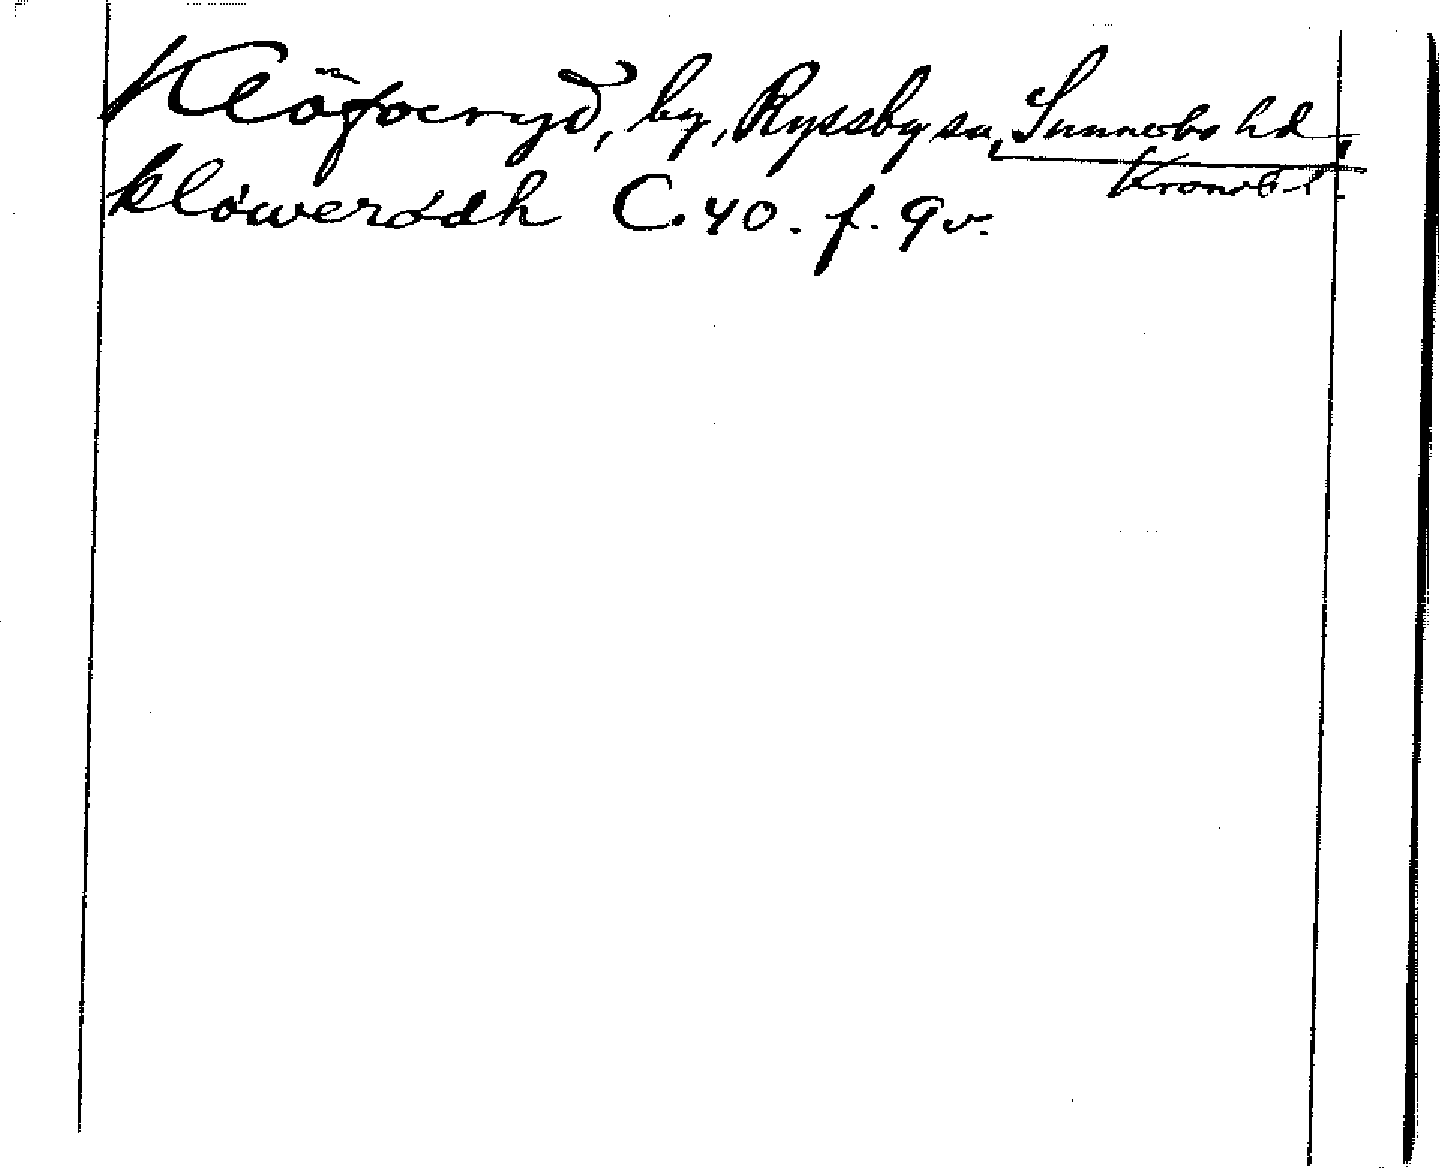 Klöfveryd, by, Ryssby sn, Sunnerbo hd,
Kronob. l.
klöwerödh C. 40. f. 9v.